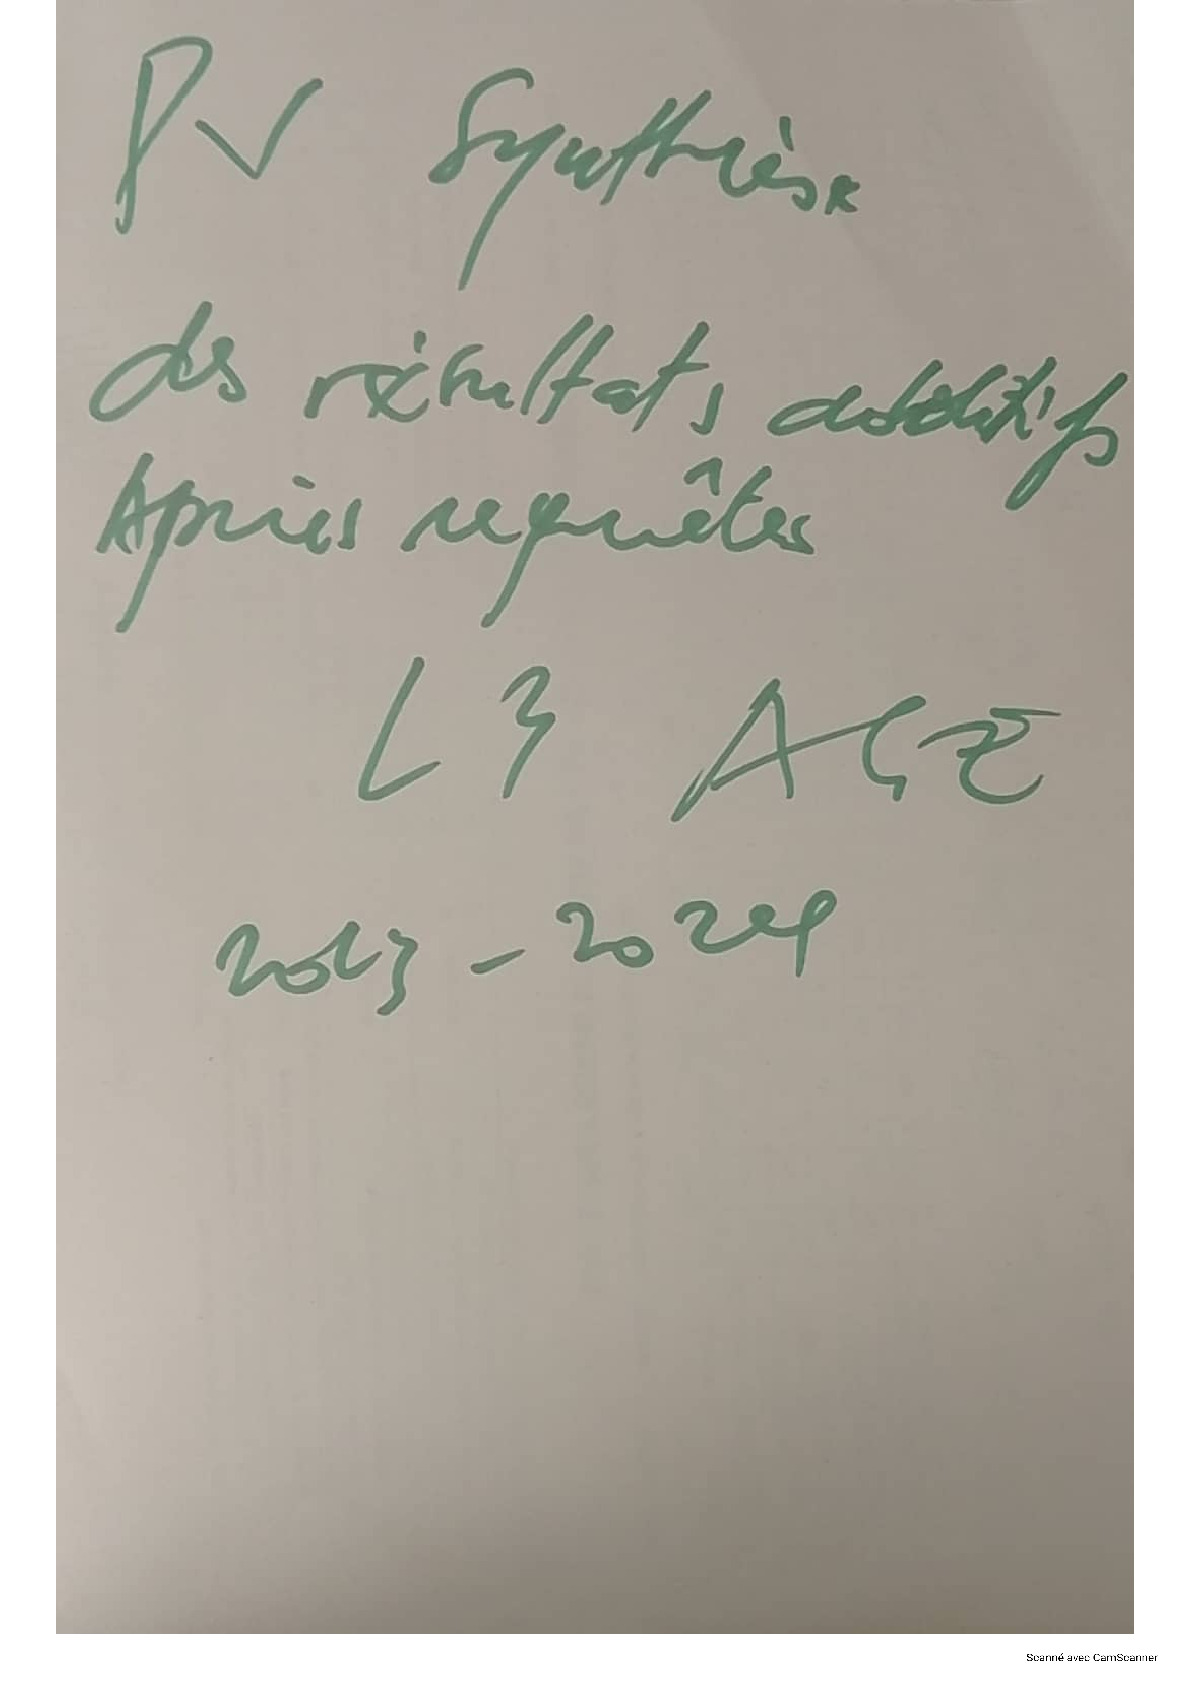 PV Synthèse
des résultats additifs
Après requêtes
L3 AGE
2023 - 2024
Scanné avec CamScanner